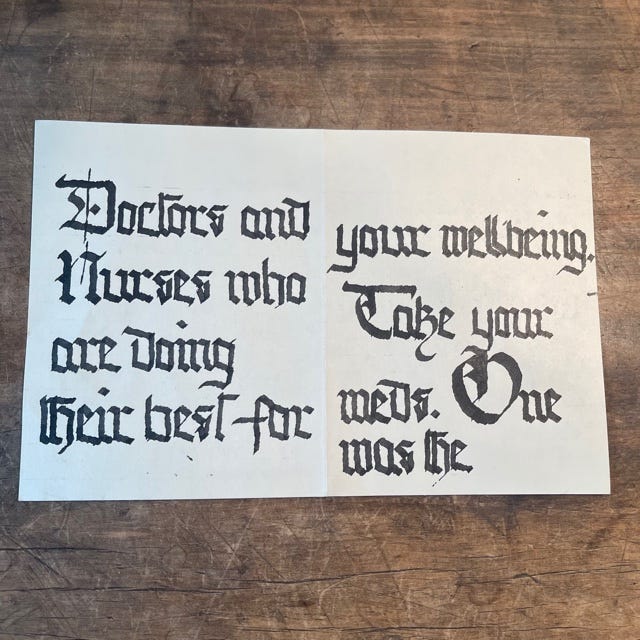 Doctors and
Nurses who
are doing
their best for
your wellbeing.
Take your
meds. One
was the